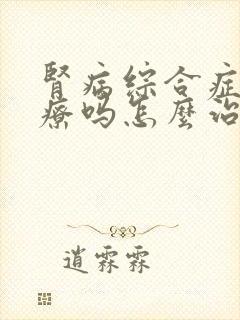 腎病綜合症
療吗怎麼治
逍霖霖